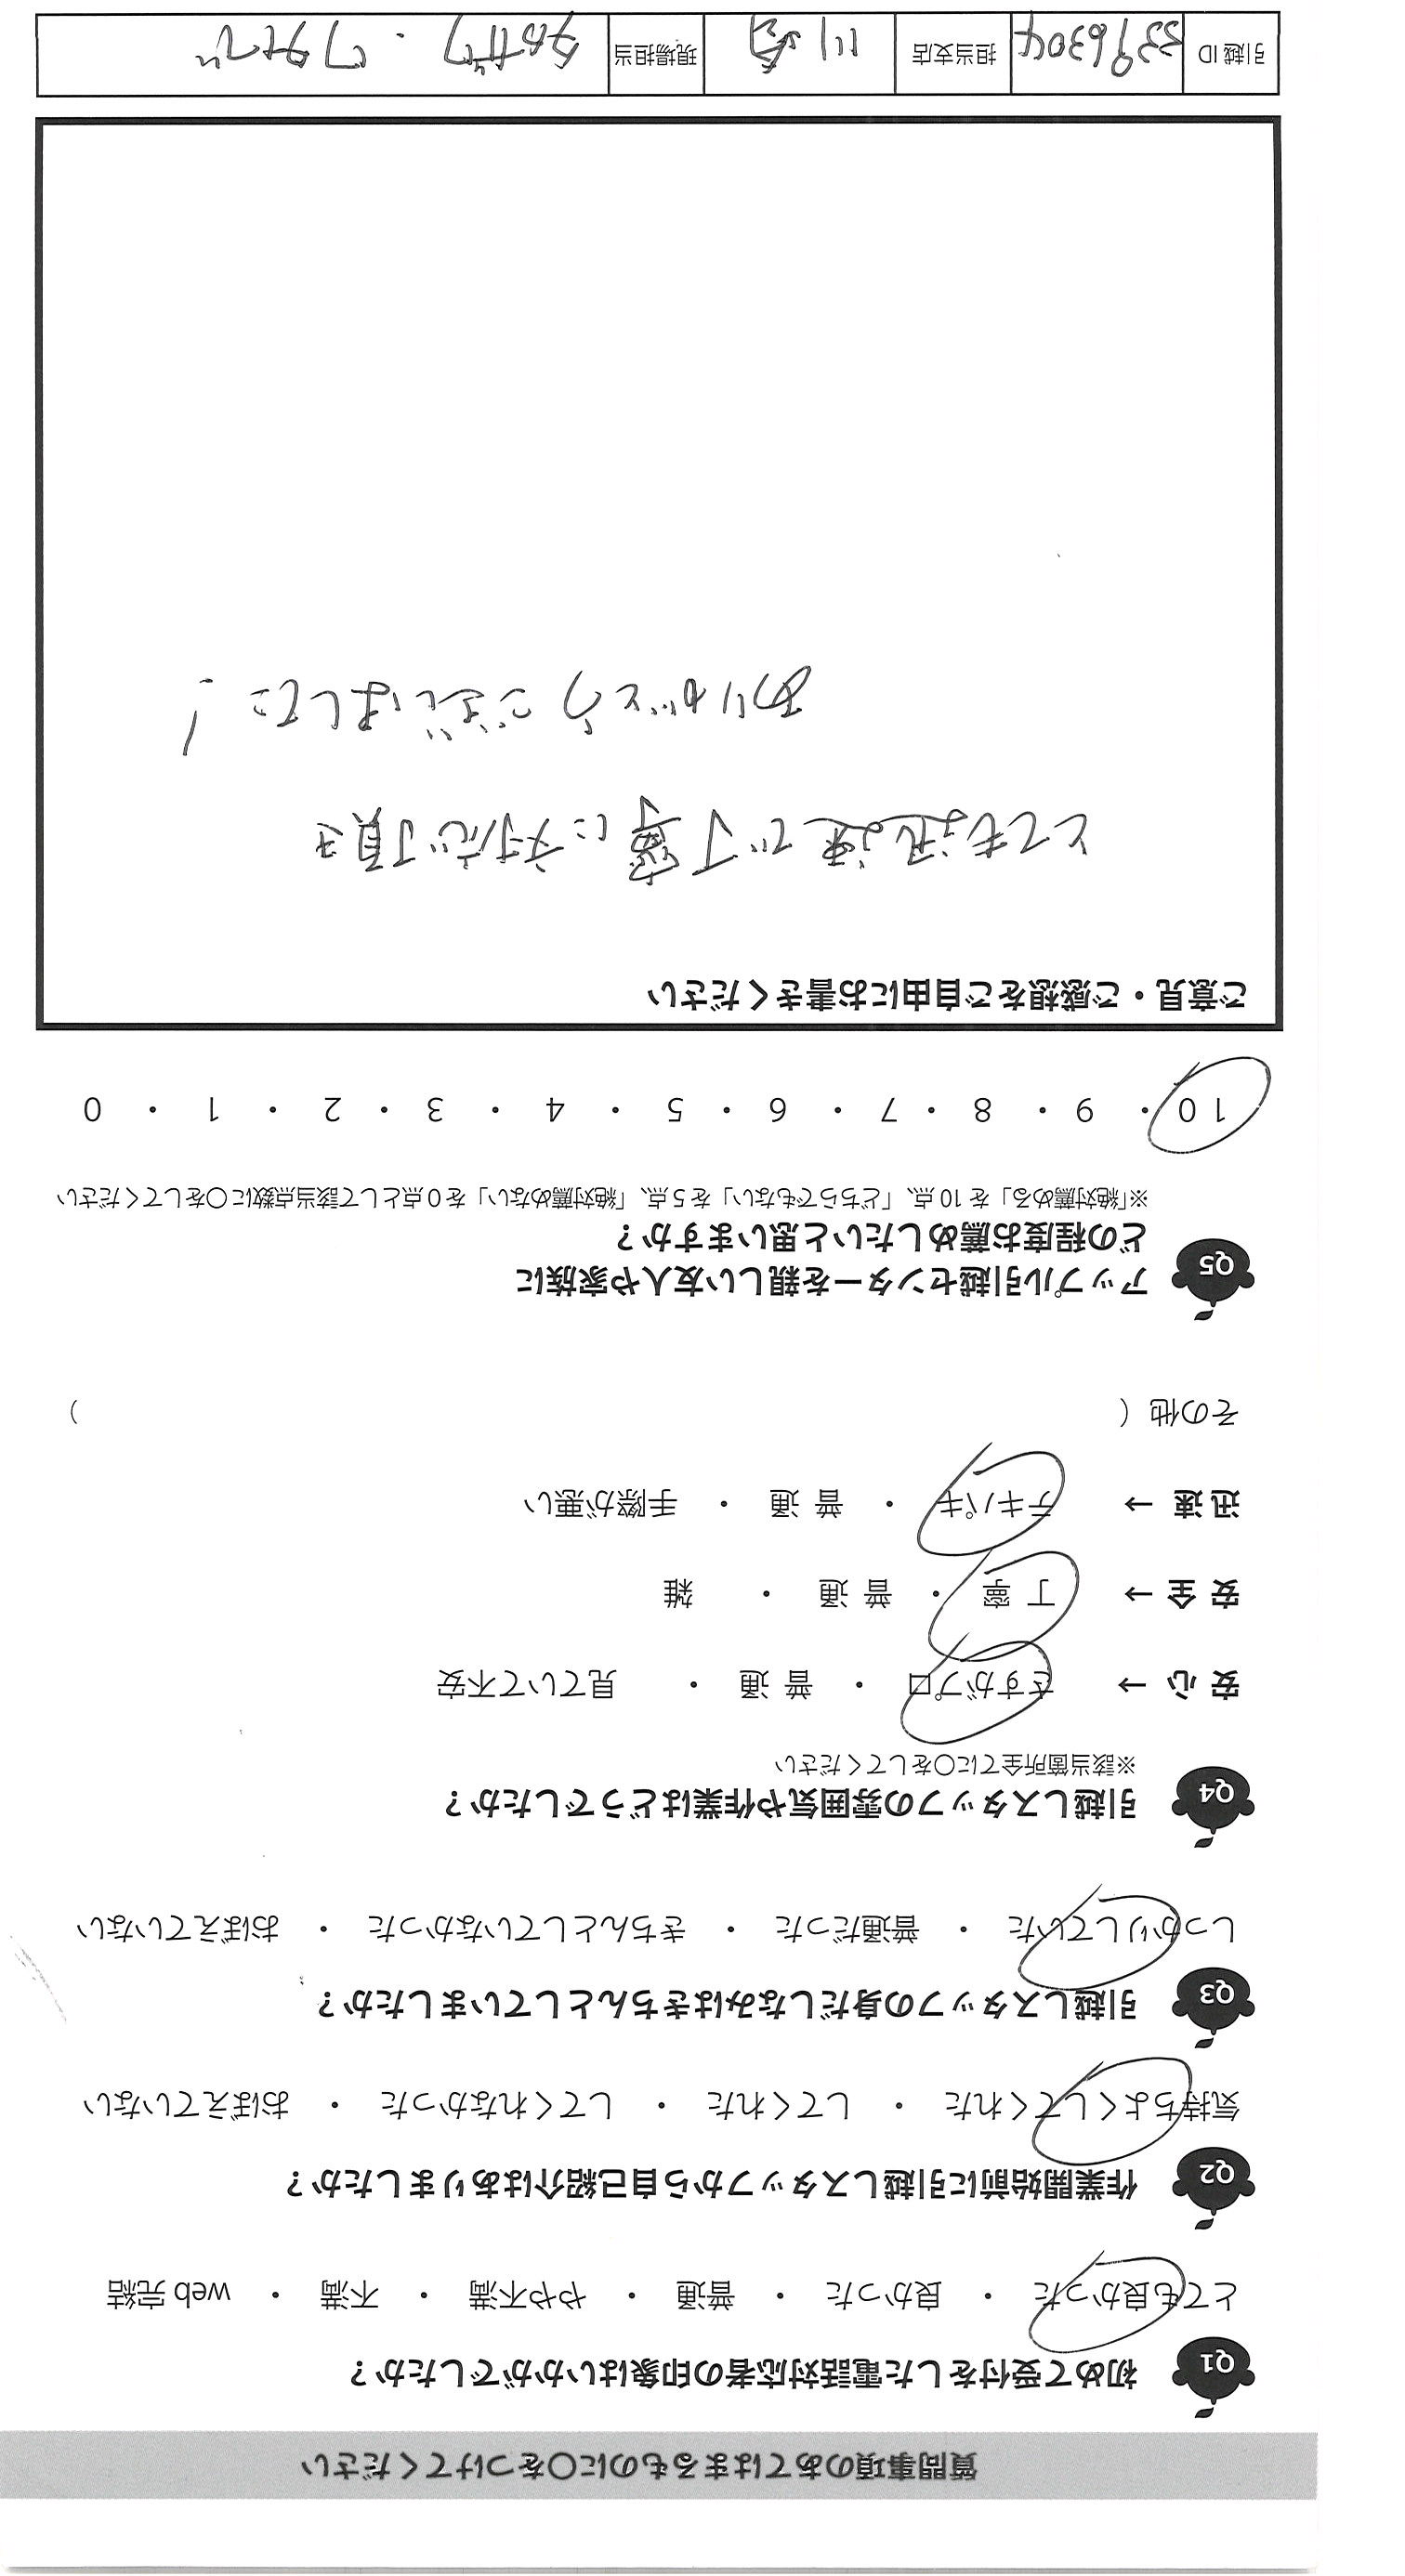 質問事項のあてはまるものに○をつけてください
Q1 初めて受付をした電話対応者の印象はいかがでしたか？
とても良かった ・ 良かった ・ 普通 ・ やや不満 ・ 不満 ・ web 完結
Q2 作業開始前に引越しスタッフから自己紹介はありましたか？
気持ちよくしてくれた ・ してくれた ・ してくれなかった ・ おぼえていない
Q3 引越しスタッフの身だしなみはきちんとしていましたか？
しっかりしていた ・ 普通だった ・ きちんとしていなかった ・ おぼえていない
Q4 引越しスタッフの雰囲気や作業はどうでしたか？
※該当箇所全てに○をしてください
安 心 → さすがプロ ・ 普 通 ・ 見ていて不安
安 全 → 丁 寧 ・ 普 通 ・ 雑
迅 速 → テキパキ ・ 普 通 ・ 手際が悪い
その他（ ）
Q5 アップル引越センターを親しい友人や家族に
どの程度お薦めしたいと思いますか？
※「絶対薦める」を 10 点、「どちらでもない」を 5 点、「絶対薦めない」を 0 点として該当点数に○をしてください
10 ・ 9 ・ 8 ・ 7 ・ 6 ・ 5 ・ 4 ・ 3 ・ 2 ・ 1 ・ 0
ご意見・ご感想をご自由にお書きください
とても迅速で丁寧に対応頂き
ありがとうございました！
引越 ID 3396304 担当支店 川崎 現場担当